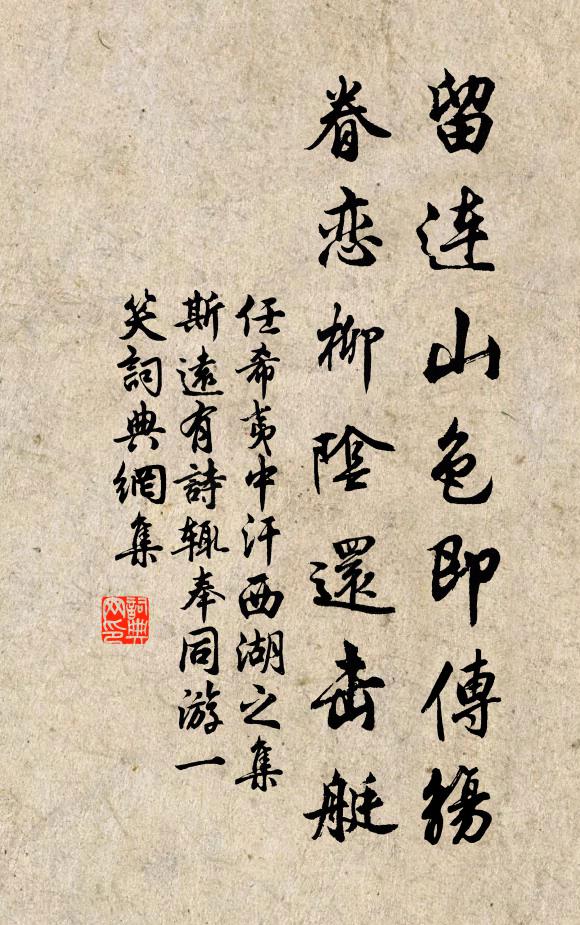 留连山色即傳觴
眷恋柳陰還击艇
任希夷中汗西湖之集
斯遠有詩辄奉同游一
笑詞典網集
詞典
网印